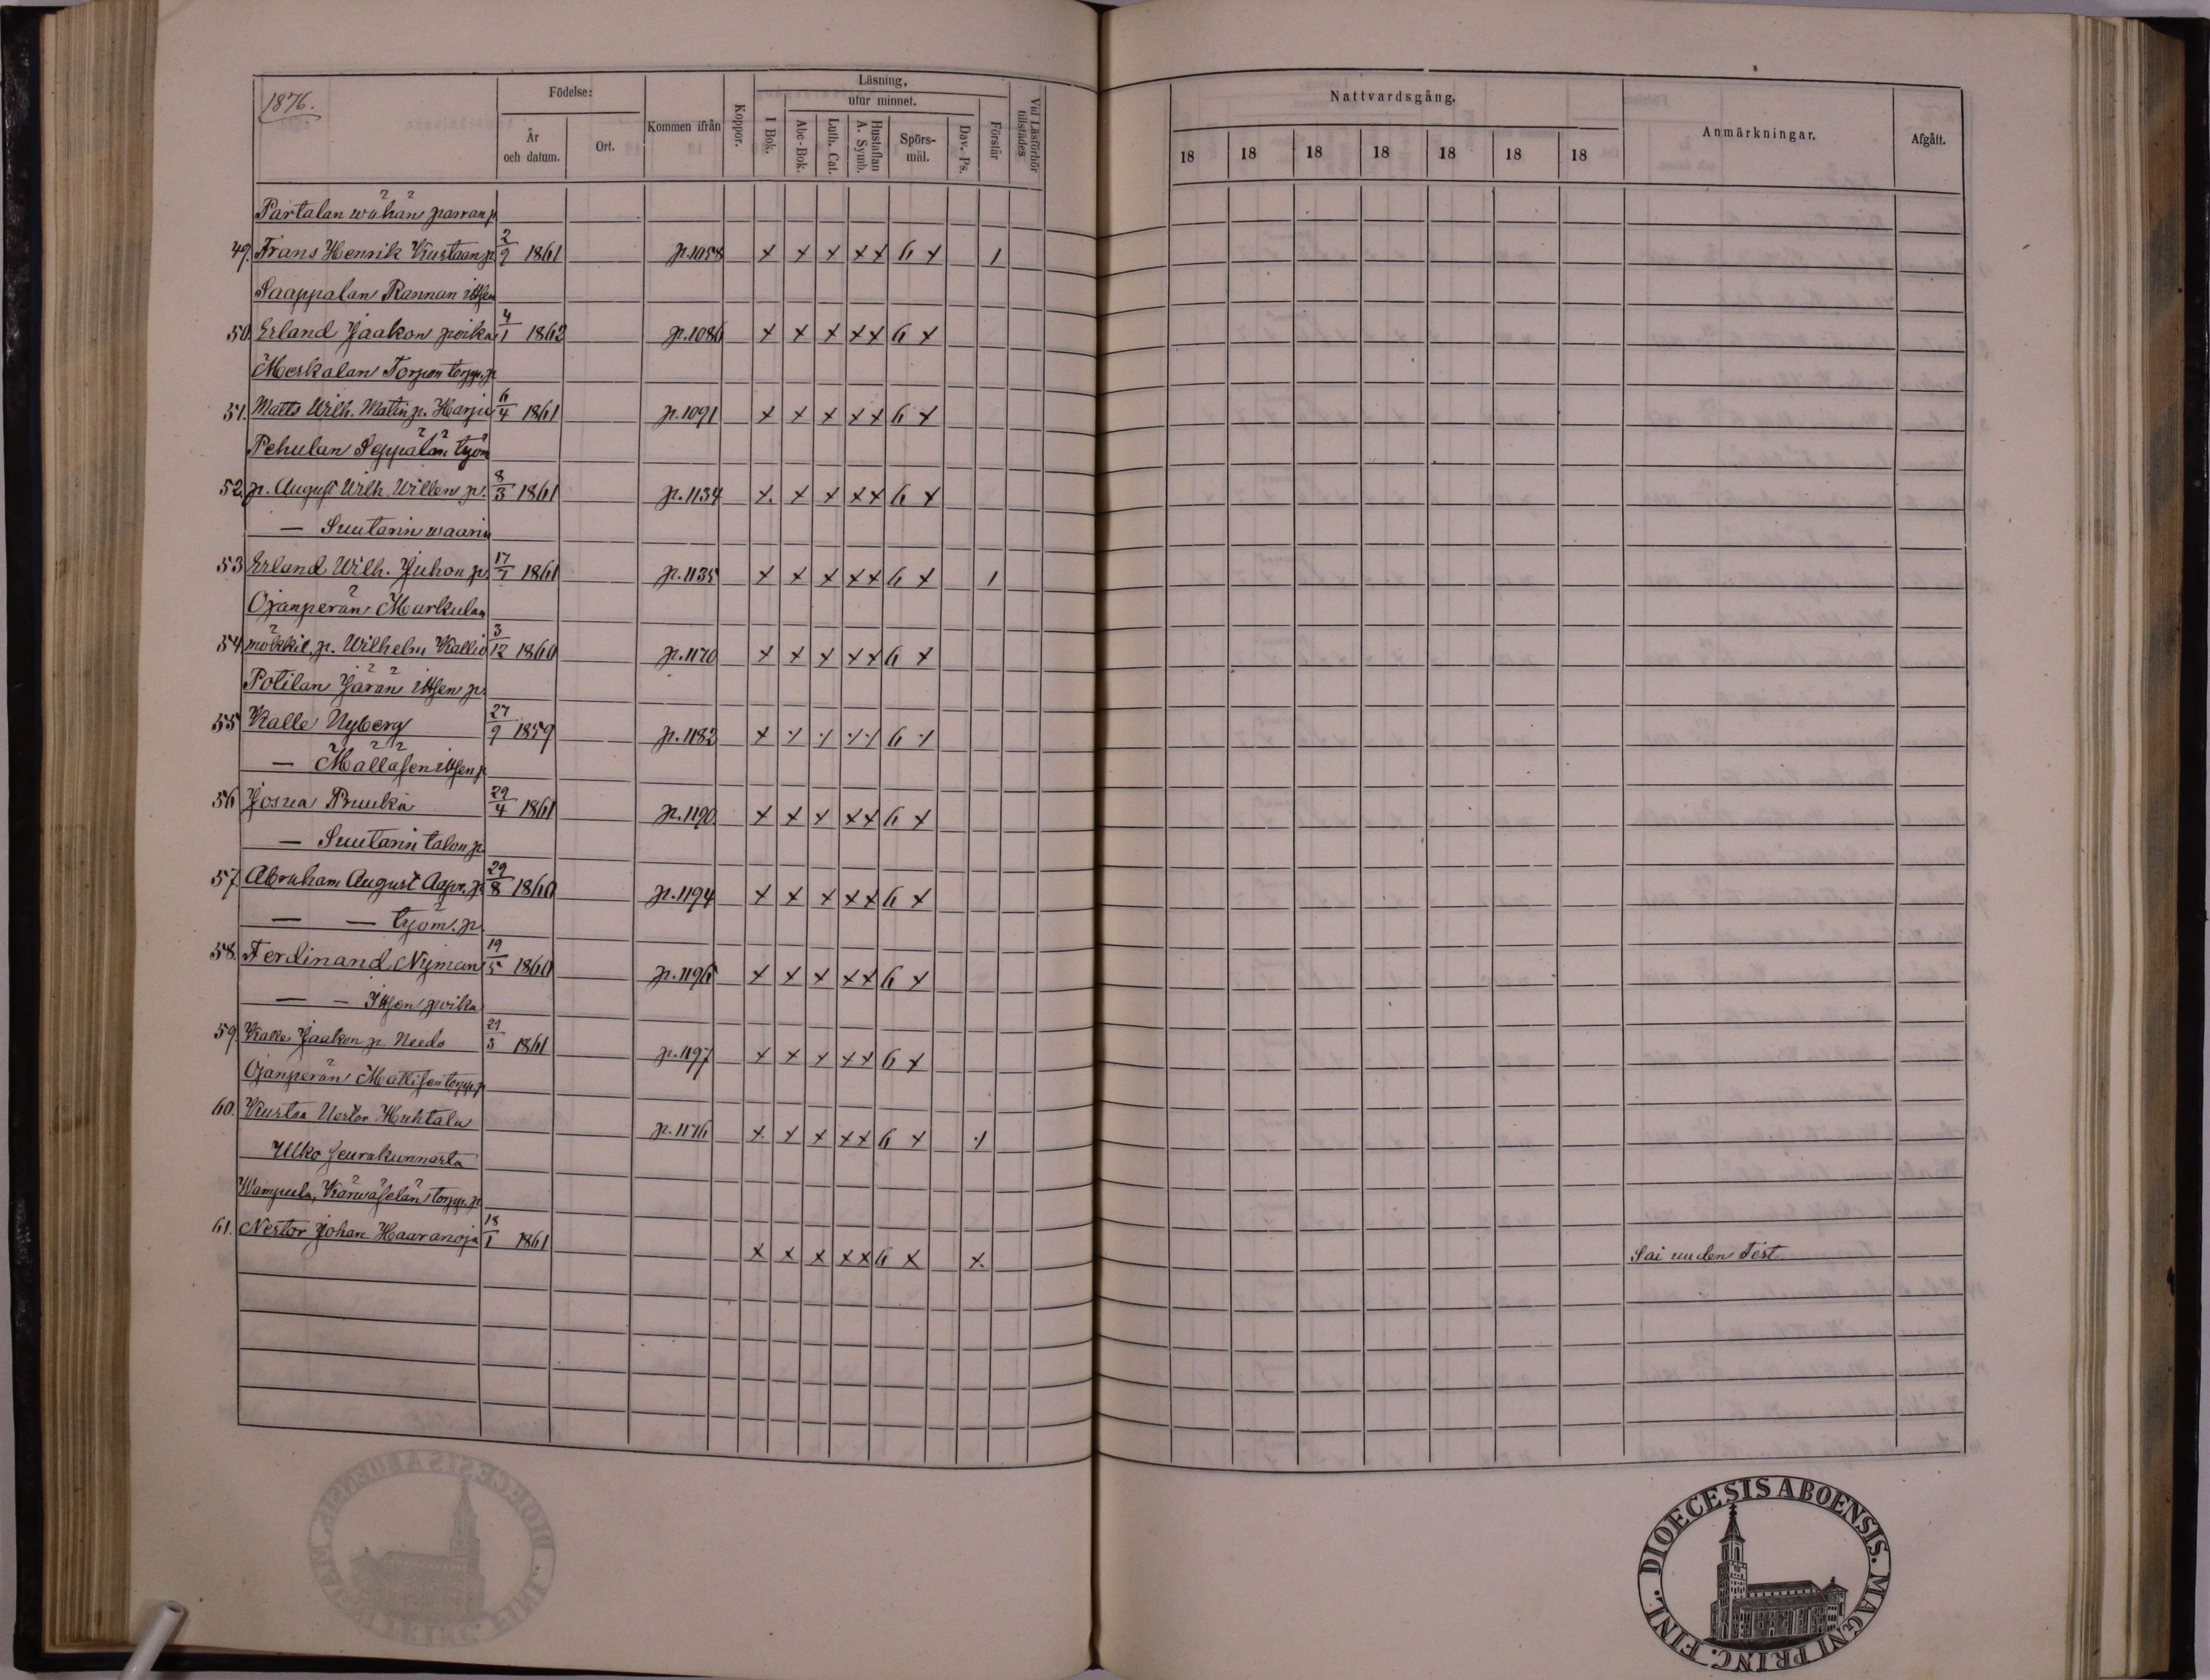 1876.
Födelse:
År och datum.
Ort.
Kommen ifrån
Koppor.
Läsning,
utur minnet.
I Bok.
Abc-Bok.
Luth. Cat.
Hustaflan A. Symb.
Spörs-mål.
Dav. Ps.
Förstår
Vid Läsförhör tillstädes
Nattvardsgång.
18 18 18 18 18 18 18
Anmärkningar.
Afgått.
Partalan wähän parran p
49. Frans Henrik Kustaan p 2/9 1861 p.1058 x x x x x 6 x 1
Saappalan Rannan ittsen
50. Erland Jaakon poika 4/1 1862 p.1086 x x x x x 6 x
Merkalan Torpan torpp. p
51. Matts Wilh. Matin p. Harju 6/4 1861 p.1091 x x x x x 6 x
Pehulan Seppälän työm
52. p. August Wilh. Willen p. 8/3 1861 p.1134 x. x x x x 6 x
— Suutarin waarin
53 Erland Wilh. Juhon p. 17/7 1861 p.1135 x x x x x 6 x 1
Ojanperän Markulan
54. mökkil. p. Wilhelm Kallio 3/12 1860 p.1170 x x x x x 6 x
Potilan Järän ittsen p.
55 Kalle Nyberg 27/9 1859 p.1182 x ·/· ·/· ·/· ·/· 6 ·/·
— Mälläsen ittsen p
56 Josua Pruuka 29/4 1861 p.1190 x x x x x 6 x
— Suutarin talon p.
57. Abraham August Aapr. p. 29/8 1860 p.1194 x x x x x 6 x
— — työm. p.
58. Ferdinand Nyman 19/5 1860 p.1196 x x x x x 6 x
— — Ittsen poika
59. Kalle Jaakon p. 21/3 1861 p.1197 x x x x x 6 x
Ojanperän Mattisen torpp. p
60. Kustaa Nestor Huhtala p.1176 x x x x x 6 x ·/·
Ulko seurakunnasta
Wampula, Karwaselän torpp. p
61. Nestor Johan Haaranoja 18/1 1861 x x x x x 6 x x. Sai uuden Test.
DIOECESIS ABOENSIS. MAGNI PRINC. FINL.